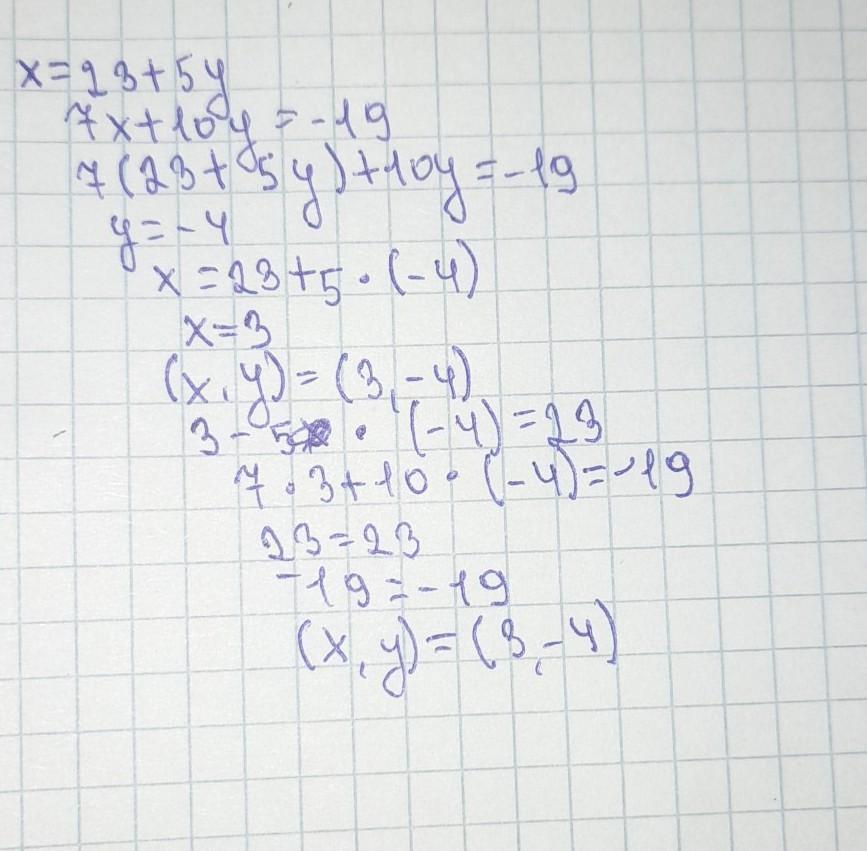 x=23+5y
7x+10y=-19
7(23+5y)+10y=-19
y=-4
x=23+5·(-4)
x=3
(x,y)=(3,-4)
3-5·(-4)=23
7·3+10·(-4)=-19
23=23
-19=-19
(x,y)=(3,-4)